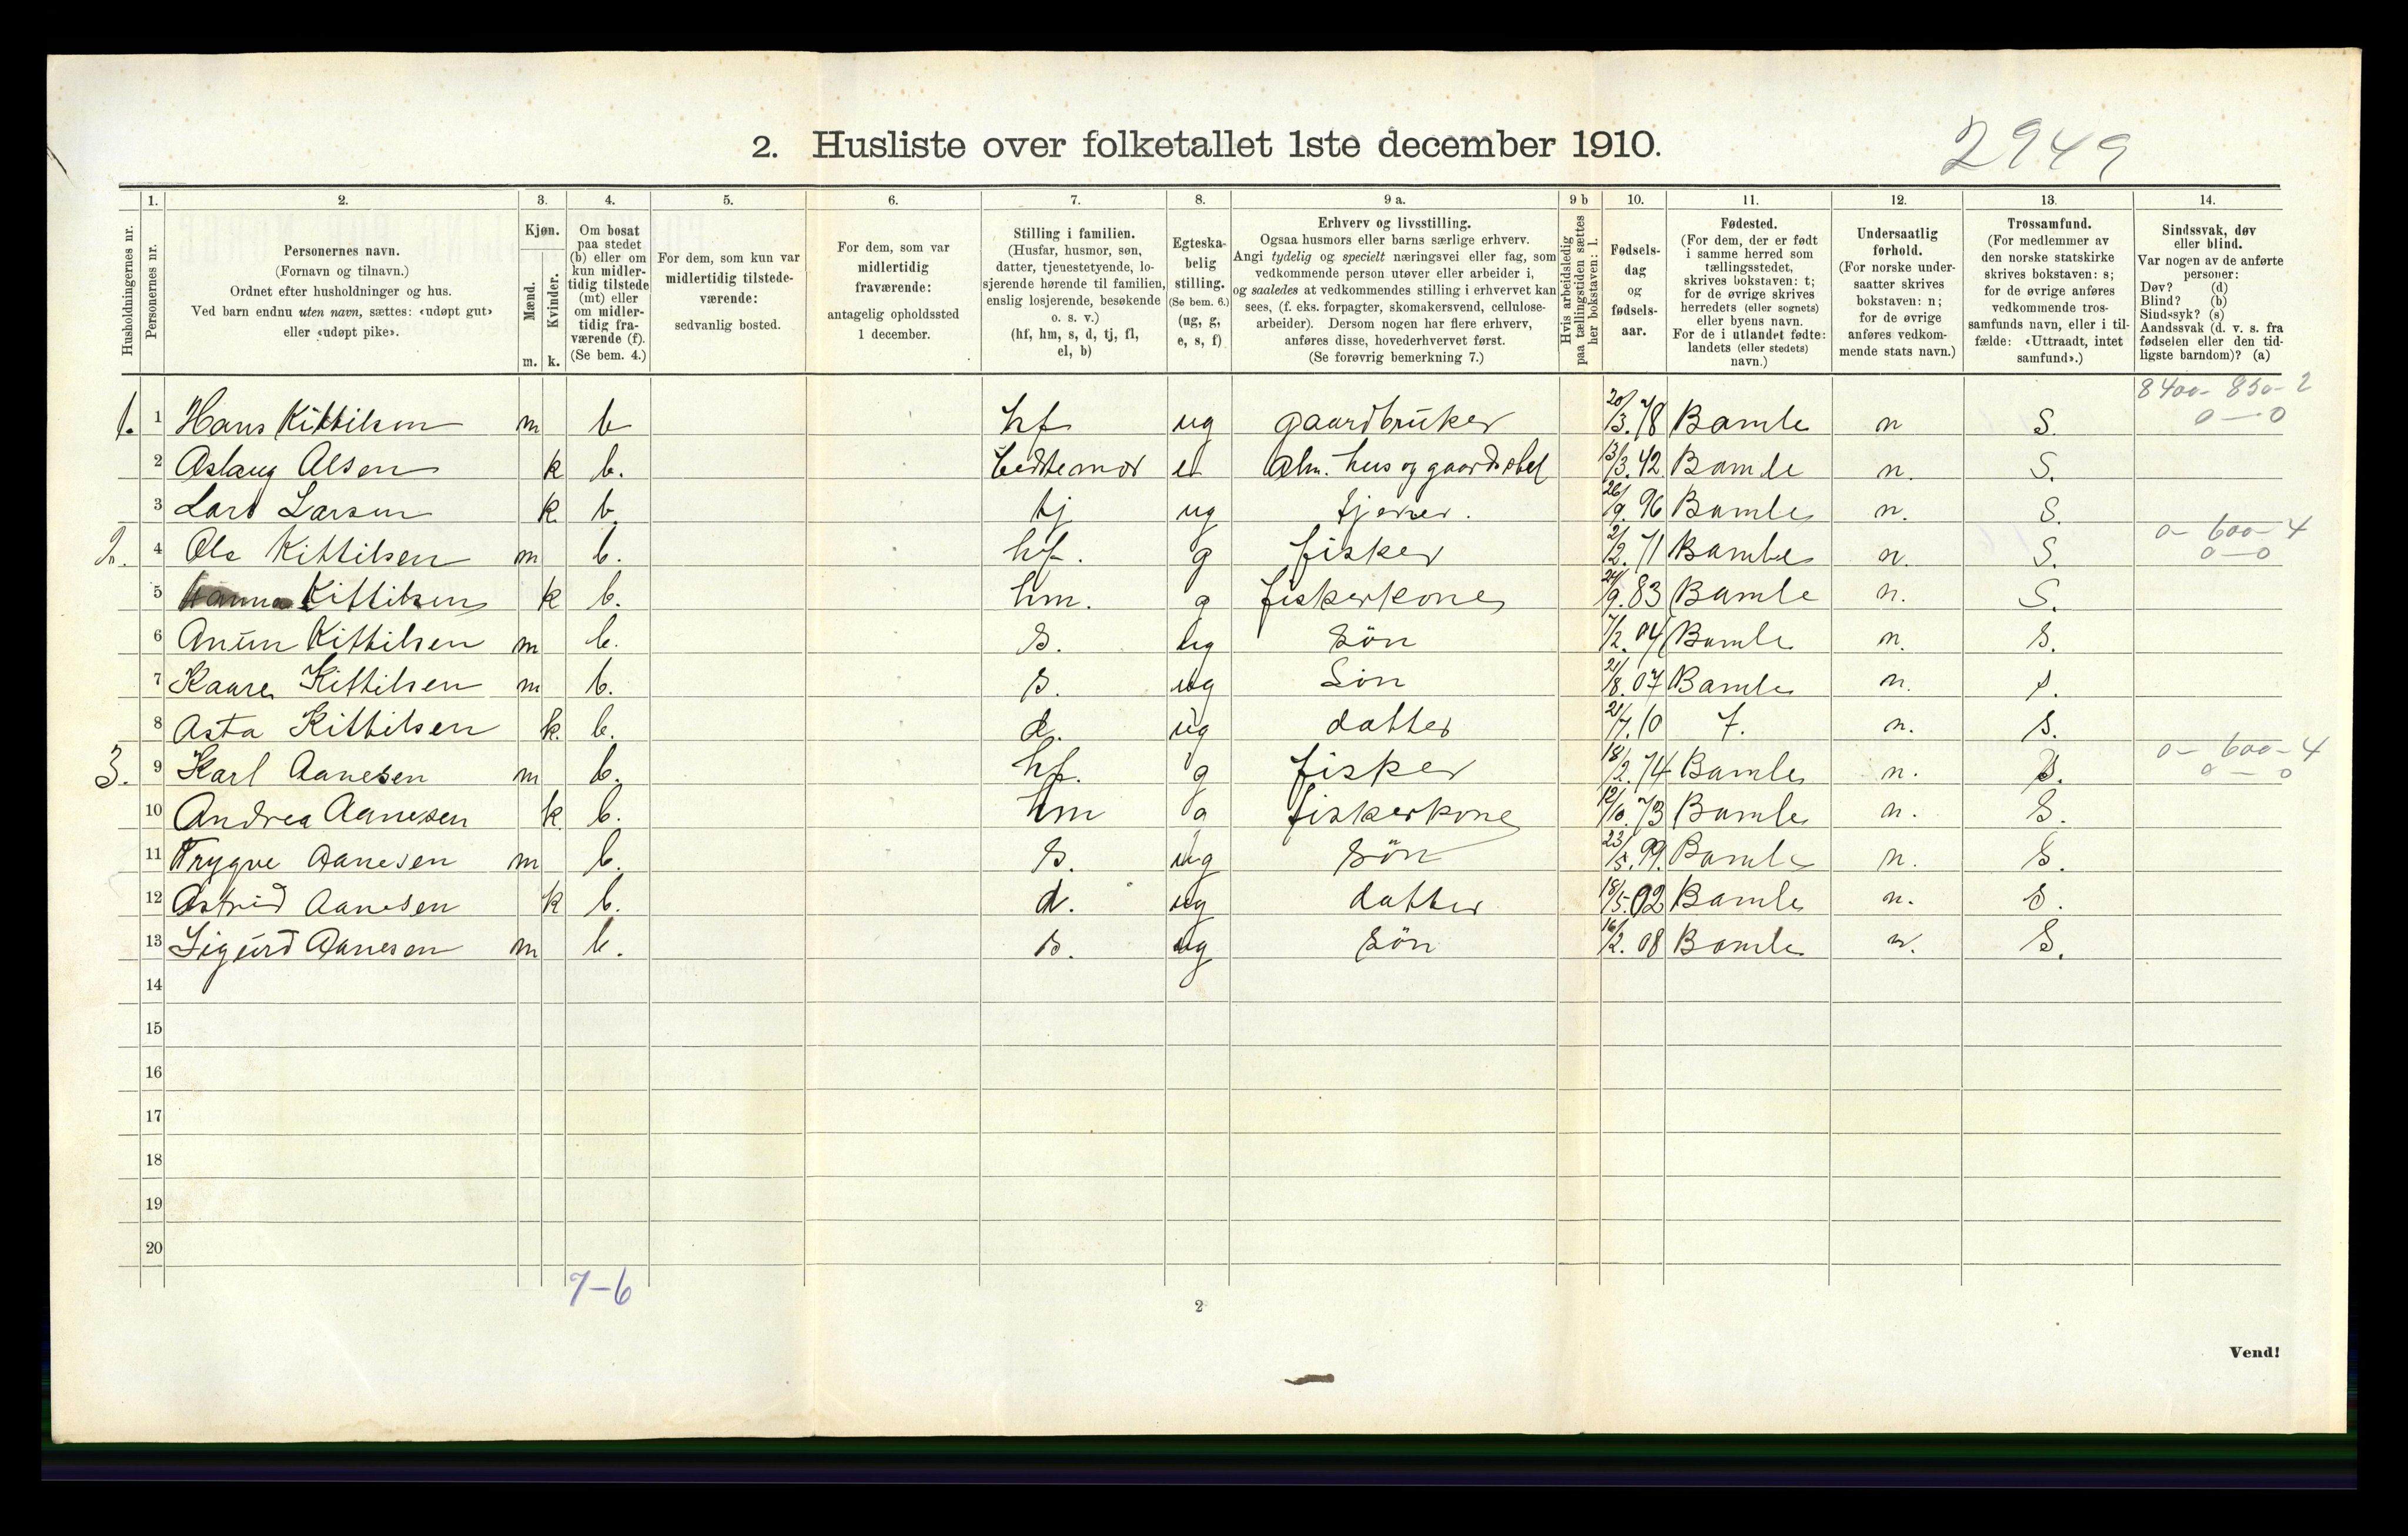 2. Husliste over folketallet 1ste december 1910.
2949
1. 2. 3. 4. 5. 6. 7. 8. 9 a. 9 b 10. 11. 12. 13. 14.
Husholdningernes nr.
Personernes nr.
Personernes navn.
(Fornavn og tilnavn.)
Ordnet efter husholdninger og hus.
Ved barn endnu uten navn, sættes: «udøpt gut»
eller «udøpt pike».
Kjøn.
Mænd.
Kvinder.
m. k.
Om bosat
paa stedet
(b) eller om
kun midler-
tidig tilstede
(mt) eller
om midler-
tidig fra-
værende (f).
(Se bem. 4.)
For dem, som kun var
midlertidig tilstede-
værende:
sedvanlig bosted.
For dem, som var
midlertidig
fraværende:
antagelig opholdssted
1 december.
Stilling i familien.
(Husfar, husmor, søn,
datter, tjenestetyende, lo-
sjerende hørende til familien,
enslig losjerende, besøkende
o. s. v.)
(hf, hm, s, d, tj, fl,
el, b)
Egteska-
belig
stilling.
(Se bem. 6.)
(ug, g,
e, s, f)
Erhverv og livsstilling.
Ogsaa husmors eller barns særlige erhverv.
Angi tydelig og specielt næringsvei eller fag, som
vedkommende person utøver eller arbeider i,
og saaledes at vedkommendes stilling i erhvervet kan
sees, (f. eks. forpagter, skomakersvend, cellulose-
arbeider). Dersom nogen har flere erhverv,
anføres disse, hovederhvervet først.
(Se forøvrig bemerkning 7.)
Hvis arbeidsledig
paa tællingstiden sættes
her bokstaven: l.
Fødsels-
dag
og
fødsels-
aar.
Fødested.
(For dem, der er født
i samme herred som
tællingsstedet,
skrives bokstaven: t;
for de øvrige skrives
herredets (eller sognets)
eller byens navn.
For de i utlandet fødte:
landets (eller stedets)
navn.)
Undersaatlig
forhold.
(For norske under-
saatter skrives
bokstaven: n;
for de øvrige
anføres vedkom-
mende stats navn.)
Trossamfund.
(For medlemmer av
den norske statskirke
skrives bokstaven: s;
for de øvrige anføres
vedkommende tros-
samfunds navn, eller i til-
fælde: «Uttraadt, intet
samfund».)
Sindssvak, døv
eller blind.
Var nogen av de anførte
personer:
Døv? (d)
Blind? (b)
Sindssyk? (s)
Aandssvak (d. v. s. fra
fødselen eller den tid-
ligste barndom)? (a)
8400-850-2
1. 1 Hans Kittilsen m b hf ug gaardbruker 20/3.78 Bamle n S. 0-0
2 Aslaug Olsen k b. bedstemor e Alm. hus og gaardsstel 13/3.42 Bamle n. S.
3 Lars Larsen k. b. tj ug tjener. 26/9.96 Bamle n. S.
0-600-4
2. 4 Ole Kittilsen m b. hf. g fisker 2/2.71 Bamle n. S. 0-0
5 Hanna Kittilsen k b. hm. g fiskerkone 24/9.83 Bamle n. S.
6 Anun Kittilsen m b. s. ug Søn 7/2.04 Bamle n. S.
7 Kaare Kittilsen m b. s. ug Søn 21/8.07 Bamle n. s.
8 Asta Kittilsen k. b. d. ug datter 21/7.10 t. n. s.
0-600-4
3. 9 Karl Aanesen m b. hf. g fisker 18/2.74 Bamle n. S. 0-0
10 Andrea Aanesen k b. hm g fiskerkone 12/10.73 Bamle n. S.
11 Trygve Aanesen m b. s. ug søn 23/5.99. Bamle n. S.
12 Astrid Aanesen k b. d. ug datter 18/5.02 Bamle n. S.
13 Sigurd Aanesen m b. s. ug søn 16/2.08 Bamle n. S.
14
15
16
17
18
19
20
7-6
2
Vend!